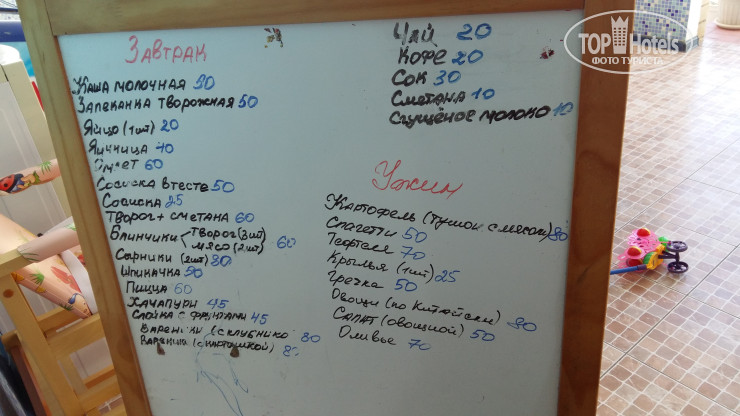 Завтрак
Каша молочная 50
Запеканка творожная 50
Яйцо (1шт) 20
Яичница 40
Омлет 60
Сосиска в тесте 50
Сосиска 25
Творог + сметана 60
Блинчики творог (3шт) мясо (2шт) 60
Сырники (2шт) 80
Шпикачка 50
Пицца 60
Хачапури 45
Слойка с фруктами 45
Вареники (с клубникой 80
Вареники (с картошкой)
Чай 20
Кофе 20
Сок 30
Сметана 10
Сгущёное молоко 10
Ужин
Картофель (тушон с мясом) 80
Спагетти 50
Тефтели 70
Крылья (1шт) 25
Гречка 50
Овощи (по Китайски) 80
Салат (овощной) 50
Оливье 70
TOP Hotels
ФОТО ТУРИСТА